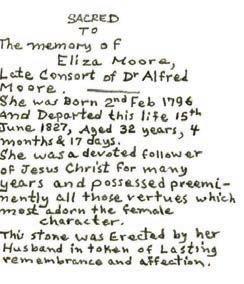 SACRED
TO
The memory of
Eliza Moore,
Late Consort of Dr Alfred
Moore.
She was Born 2nd Feb 1796
And Departed this life 15th
June 1827, Aged 32 years, 4
months & 17 days.
She was a devoted follower
of Jesus Christ for many
years and possessed preemi-
nently all those vertues which
most adorn the female
character.
This stone was Erected by her
Husband in token of Lasting
remembrance and affection.